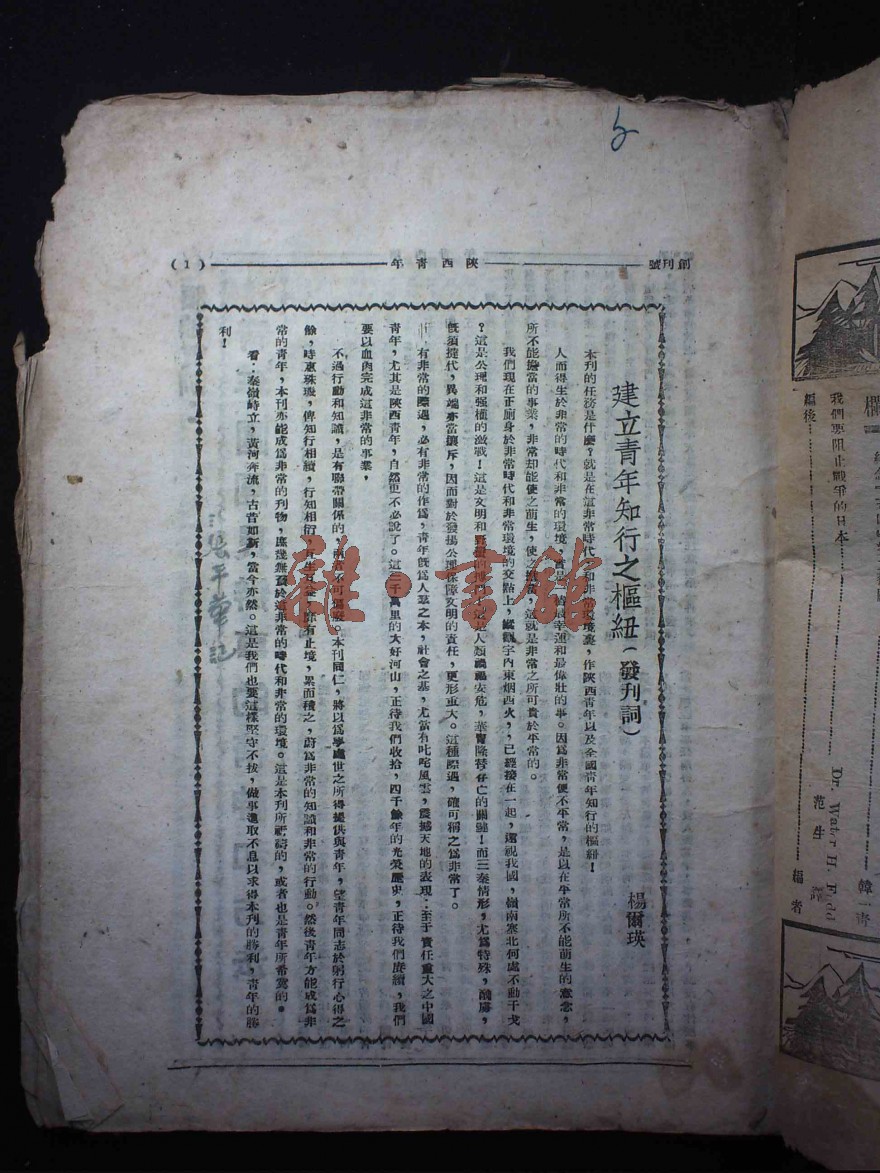 創刊號
陝西青年
(1)
建立青年知行之樞紐(發刊詞)
楊爾瑛
本刊的任務是什麼?就是在這非常時代和非常環境裏,作陝西青年以及全國青年知行的樞紐!
人而得生於非常的時代和非常的環境,實是 幸運和最偉壯的事。因爲非常便不平常,是以在平常所不能萌生的意念,
所不能擔當的事業,非常却能使之萌生,使之擔當,這就是非常之所可貴於平常的。
我們現在正廁身於非常時代和非常環境的交點上,縱觀宇內東烟西火,已經接在一起,還視我國,嶺南塞北何處不動干戈
?這是公理和强權的激戰!這是文明和野蠻的搏鬥! 人類禍福安危,華實隆替存亡的關鍵!而三秦情形,尤爲特殊,醜虜,
旣須撻伐,異端亦當攘斥,因而對於發揚公理保障文明的責任,更形重大。這種際遇,確可稱之爲非常了。
有非常的際遇,必有非常的作爲,青年旣爲人羣之本,社會之基,尤當有叱咤風雲,震撼天地的表現:至于責任重大之中國
青年,尤其是陝西青年,自然更不必說了。這三千萬里的大好河山,正待我們收拾,四千餘年的光榮歷史,正待我們賡續,我們
要以血肉完成這非常的事業,
不過行動和知識,是有聯帶關係的,兩者不可偏廢。本刊同仁,將以爲學處世之所得提供與青年,望青年同志於躬行心得之
餘,時惠珠璣,俾知行相續,行知相衍, 有止境,累而積之,蔚爲非常的知識和非常的行動。然後青年方能成爲非
常的青年,本刊亦能成爲非常的刊物,庶幾無忝於這非常的時代和非常的環境。這是本刊所祈禱的,或者也是青年所希冀的。
看:秦嶺峙立,黃河奔流,古昔如斯,當今亦然。這是我們也要這樣堅守不拔,做事進取不息以求得本刊的勝利,青年的勝
利!
雜·書館
我們要阻止戰爭的日本
Dr. Water H.
范生 譯
編後
編者
韓一青
欄